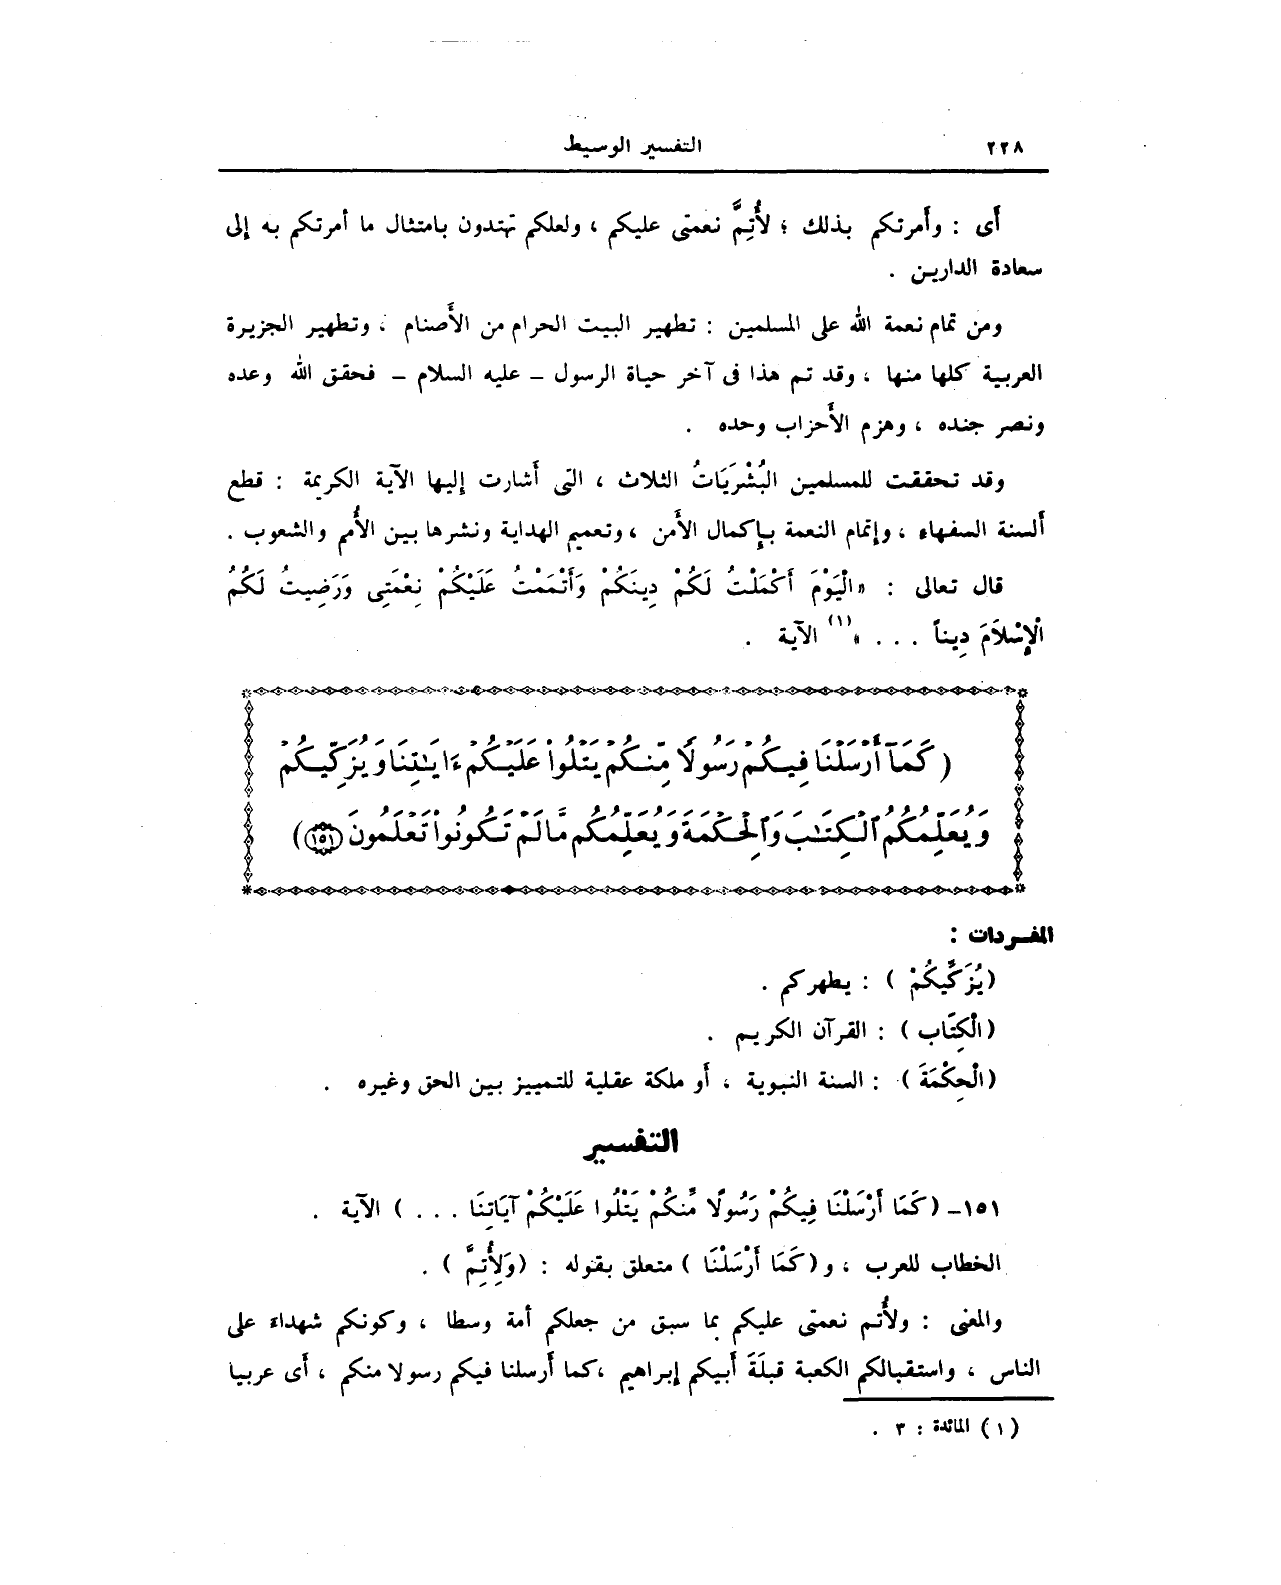 ٢٢٨
التفسير الوسيط
أى : وأمرتكم بذلك ؛ لأُتِمَّ نعمتى عليكم ، ولعلكم تهتدون بامتثال ما أمرتكم به إلى
سعادة الدارين .
ومن تمام نعمة الله على المسلمين : تطهير البيت الحرام من الأَصنام ، وتطهير الجزيرة
العربية كلها منها ، وقد تم هذا فى آخر حياة الرسول – عليه السلام – فحقق الله وعده
ونصر جنده ، وهزم الأَحزاب وحده .
وقد تحققت للمسلمين البُشْرَيَاتُ الثلاث ، التى أَشارت إليها الآية الكريمة : قطع
أَلسنة السفهاء ، وإتمام النعمة بإكمال الأَمن ، وتعميم الهداية ونشرها بين الأُمم والشعوب .
قال تعالى : « الْيَوْمَ أَكْمَلْتُ لَكُمْ دِينَكُمْ وَأَتْمَمْتُ عَلَيْكُمْ نِعْمَتِى وَرَضِيتُ لَكُمُ
الْإِسْلَامَ دِيناً . . . »(١) الآية .
( كَمَآ أَرْسَلْنَا فِيكُمْ رَسُولًا مِّنكُمْ يَتْلُوا۟ عَلَيْكُمْ ءَايَـٰتِنَا وَيُزَكِّيكُمْ
وَيُعَلِّمُكُمُ ٱلْكِتَـٰبَ وَٱلْحِكْمَةَ وَيُعَلِّمُكُم مَّا لَمْ تَكُونُوا۟ تَعْلَمُونَ ١٥١ )
المفردات :
( يُزَكِّيكُمْ ) : يطهركم .
( الْكِتَاب ) : القرآن الكريم .
( الْحِكْمَةَ ) : السنة النبوية ، أَو ملكة عقلية للتمييز بين الحق وغيره .
التفسير
١٥١– ( كَمَا أَرْسَلْنَا فِيكُمْ رَسُولًا مِّنكُمْ يَتْلُوا عَلَيْكُمْ آيَاتِنَا . . . ) الآية .
الخطاب للعرب ، و ( كَمَا أَرْسَلْنَا ) متعلق بقوله : ( وَلِأُتِمَّ ) .
والمعنى : ولأُتم نعمتى عليكم بما سبق من جعلكم أمة وسطا ، وكونكم شهداء على
الناس ، واستقبالكم الكعبة قبلَةَ أَبيكم إبراهيم ، كما أَرسلنا فيكم رسولا منكم ، أَى عربيا
( ١ ) المائدة : ٣ .